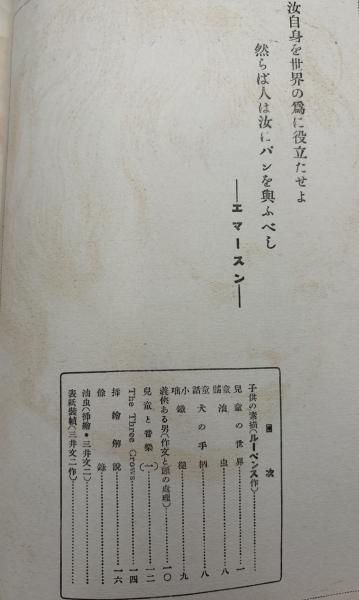 汝自身を世界の爲に役立たせよ
然らば人は汝にパンを與ふべし
──エマースン──
目次
子供の素描(ルーベンス作)
兒童の世界…………一
童謠 油虫…………八
童話 犬の手柄…………八
小咄 鐵槌…………九
義俠ある男(作文と頭の處理)…………一〇
兒童と音樂(一)…………一二
The Three Crows…………一四
揷繪解說…………一六
餘錄
油虫(揷繪・三井文二)
表紙裝幀(三井文二作)